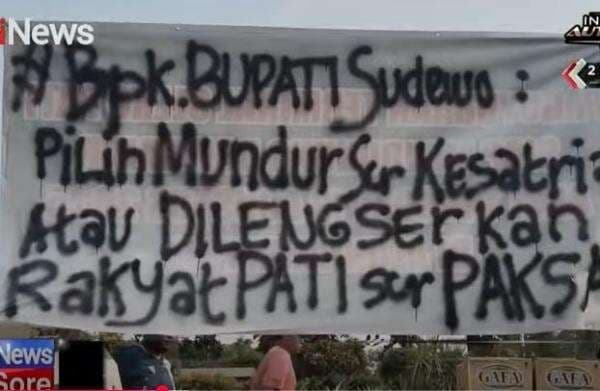 iNews
# Bpk. BUPATI Sudewo :
PiLiH Mundur Scr KESatria
Atau DILENGSErkan
Rakyat PATI scr PAKSA
News
Sore
GAFA
GAFA